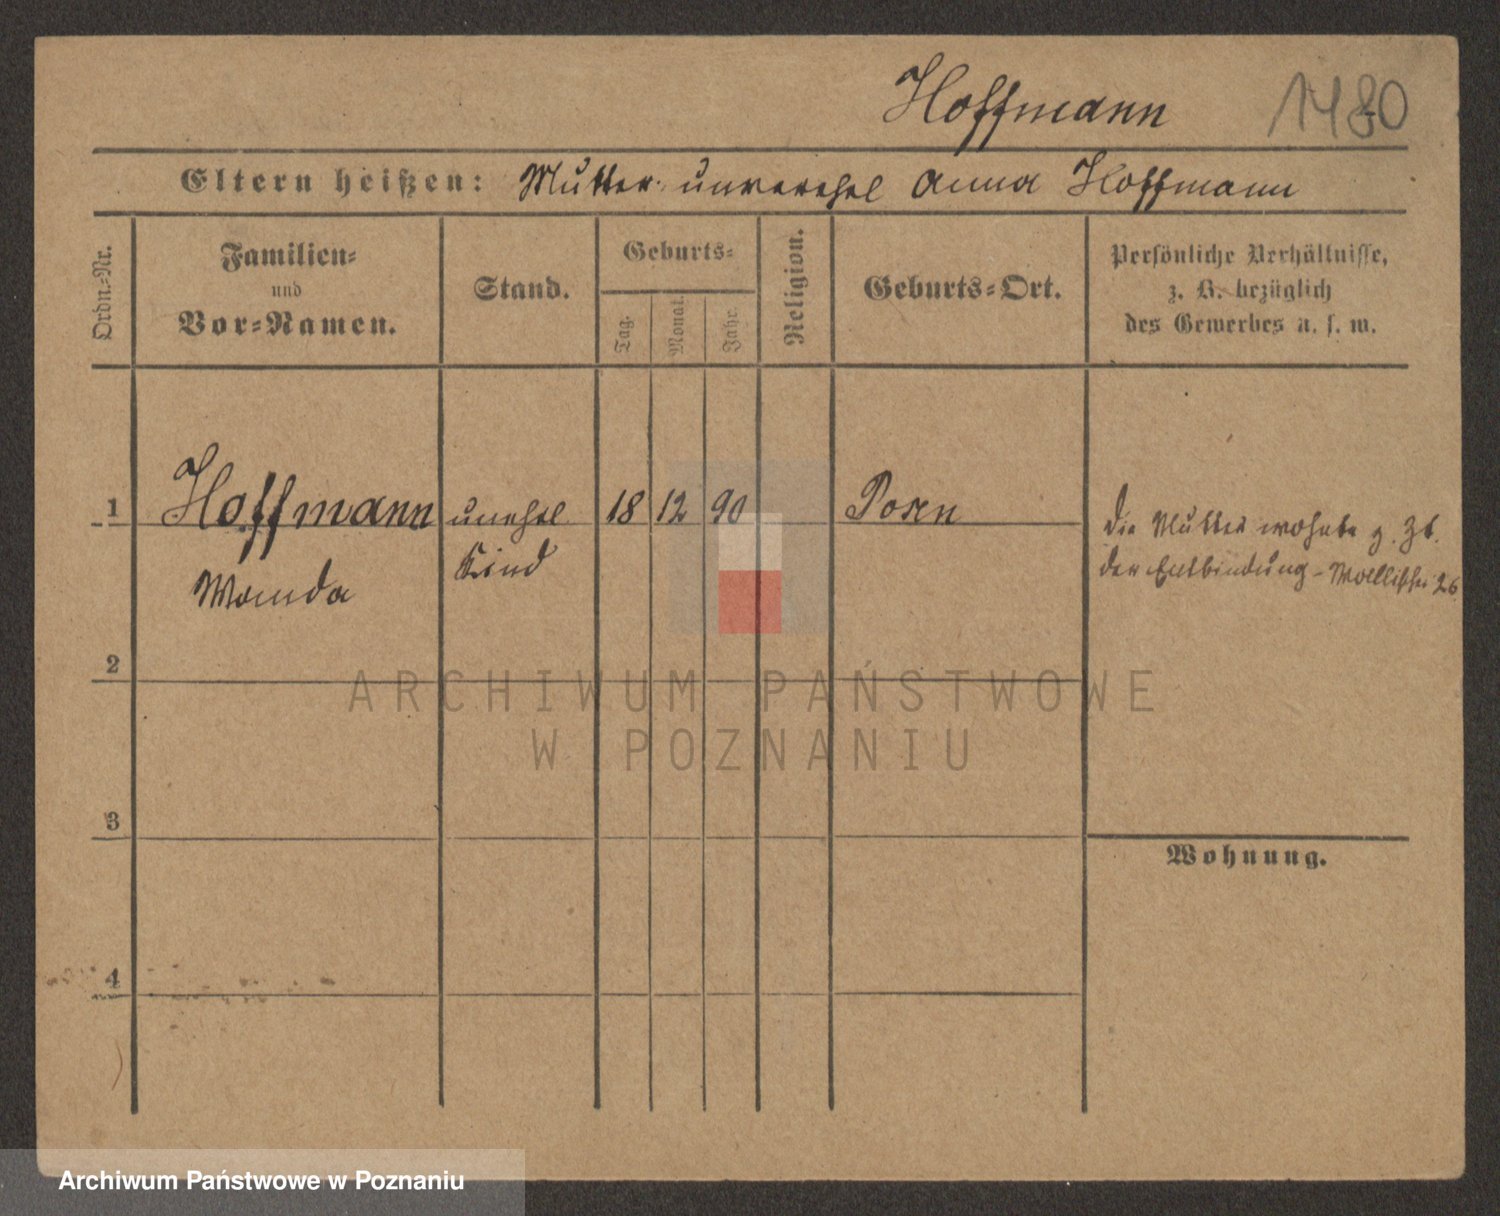 Hoffmann 1480
Eltern heißen: Mutter unverehel Anna Hoffmann
Ordn.-Nr.
Familien-
und
Vor-Namen.
Stand.
Geburts-
Tag.
Monat.
Jahr.
Religion.
Geburts-Ort.
Persönliche Verhältnisse,
z. B. bezüglich
des Gewerbes u. s. w.
1 Hoffmann unehel 18 12 90 Posen
Wanda Kind
Die Mutter wohnte z. Zt.
der Entbindung - Wallischei 26
2
ARCHIWUM PAŃSTWOWE
W POZNANIU
3
Wohnung.
4
Archiwum Państwowe w Poznaniu